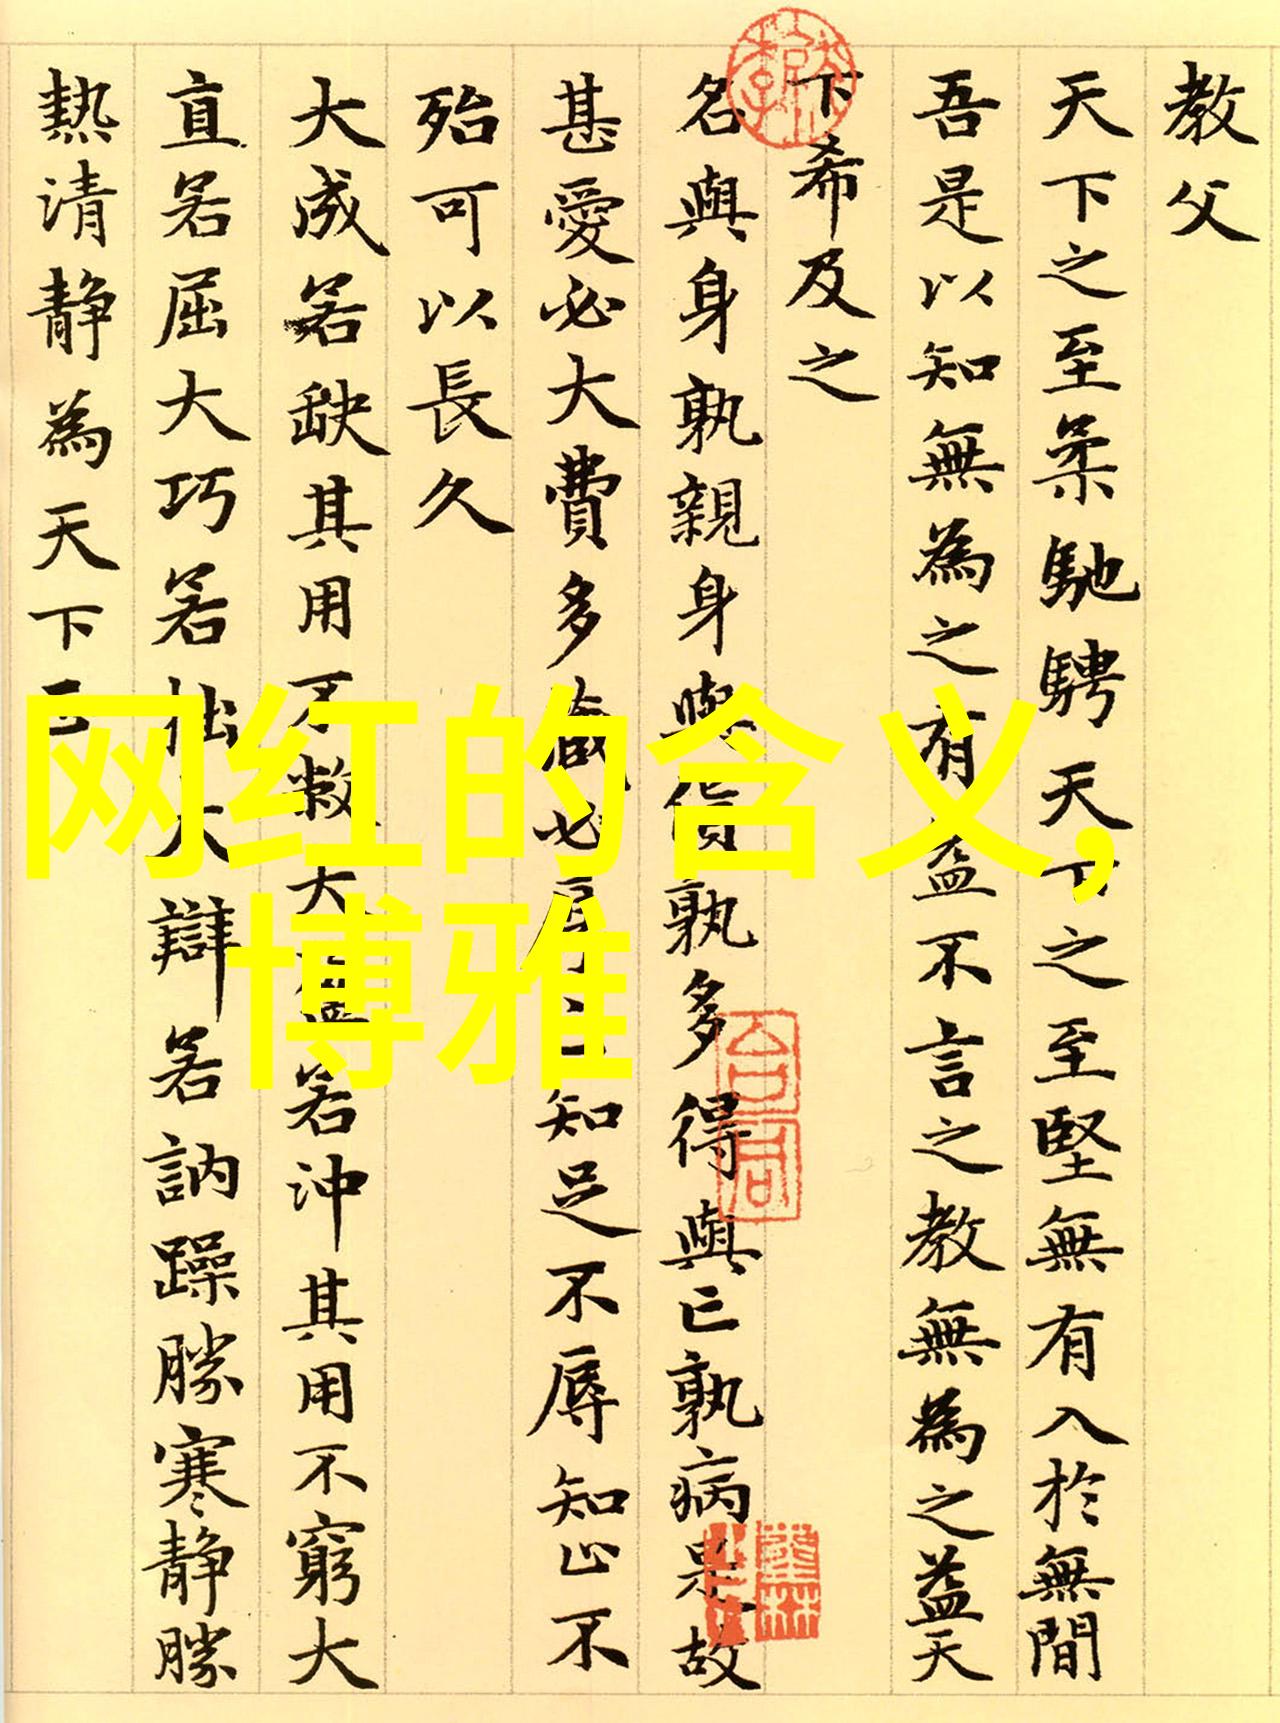 教父
天下之至柔馳騁天下之至堅無有入於無間
吾是以知無為之有益不言之教無為之益天
下希及之
名與身孰親身與貨孰多得與亡孰病是故
甚愛必大費多藏必厚亡知足不辱知止不
殆可以長久
大成若缺其用不敝大盈若沖其用不窮大
直若屈大巧若拙大辯若訥躁勝寒静勝
熱清静為天下正
网红的含义,
博雅